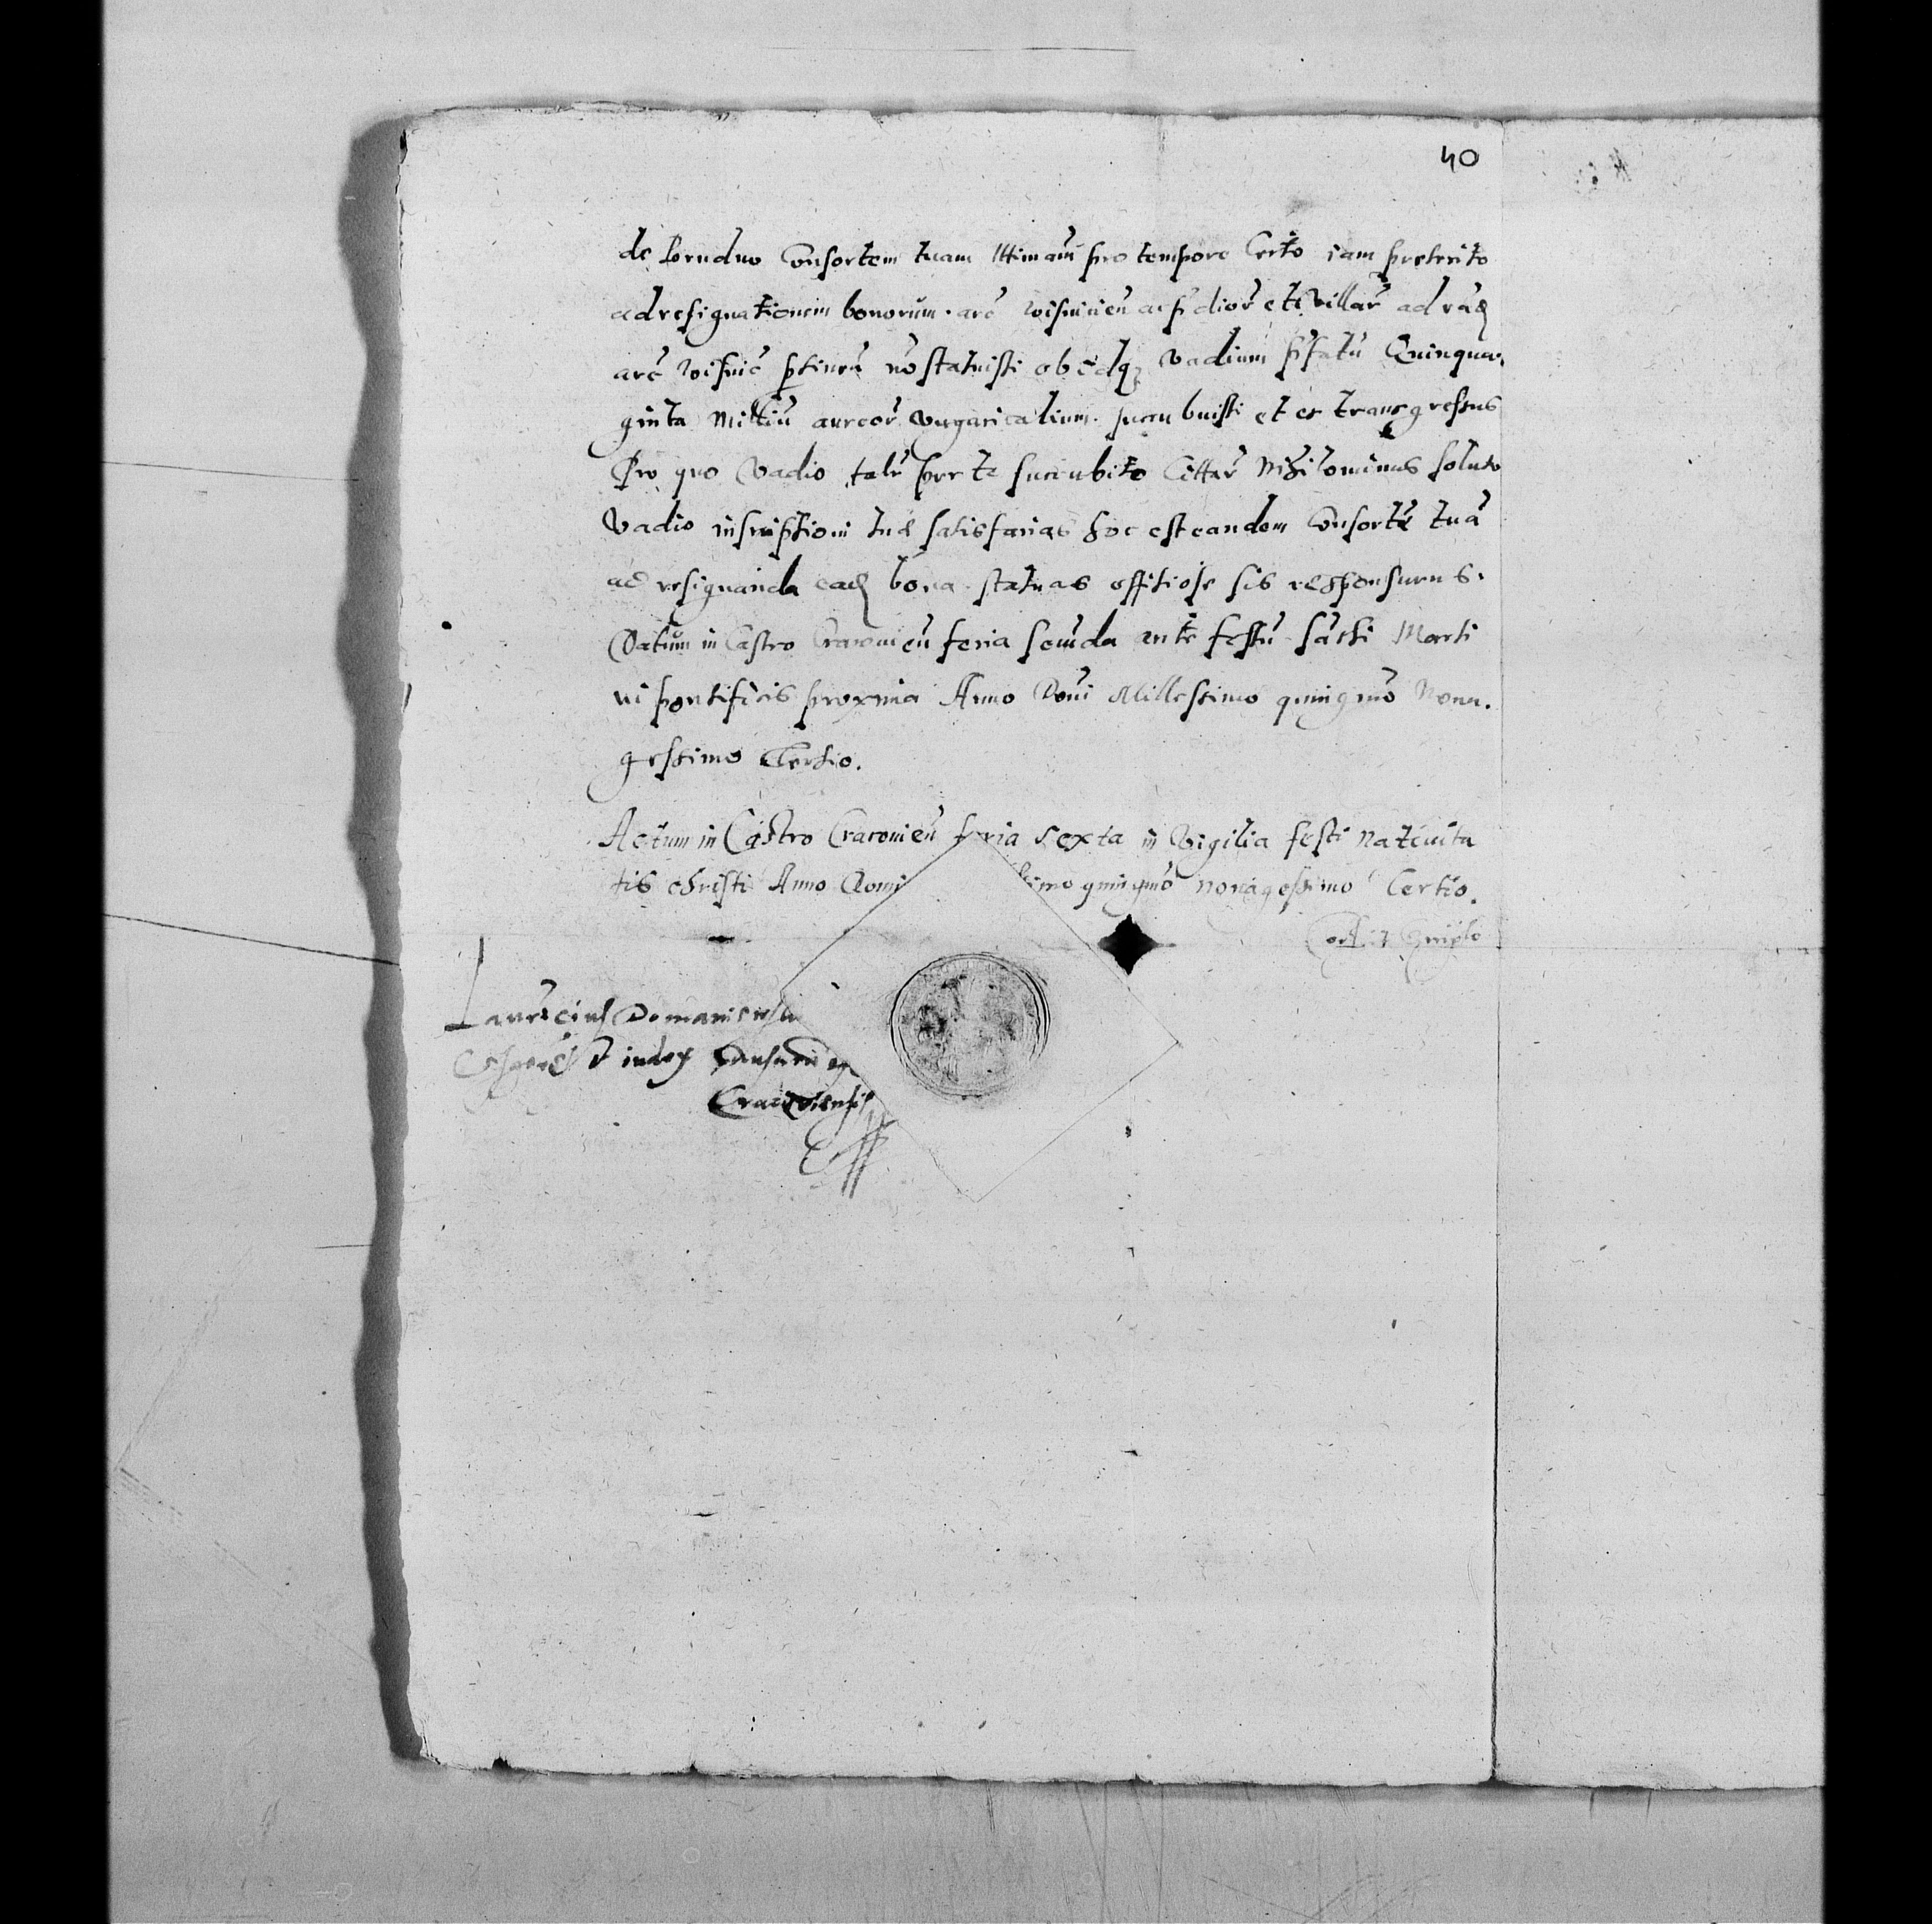 40
de Brudno Consortem tuam lttimam̃ pro tempore Certo iam preterito
ad resignationem bonorum arc̃ wisnicień ac p̃dior̃ et Villar̃ ad eãd
arc̃ wisnic̃ ptineñ nõ statuisti ob idq; vadium p̃fatũ Quinqua-
ginta Milliũ aureor̃ vngaricalium succubuisti et es transgressus
Pro quo Vadio talr̃ per te succubito Cittar̃ Nihilominus soluto
Vadio inscriptioni tuæ satisfacias hoc est eandem Consortẽ tuã
ad resignanda ead bona statuas offitiose sis responsurus.
Datum in Castro Cracouień feria Secuda ante festũ Sãcti Marti
ni pontificis proxima Anno Doni Millessimo quingmo Nona-
gessimo Tertio.
Actum in Castro Cracouień feria Sexta in Vigilia festi Natiuita
tis Christi Anno Domi simo quingmo nonagessimo Tertio.
Laurẽcius Domaniewski
et iudex Causarũ
Cracouiensis